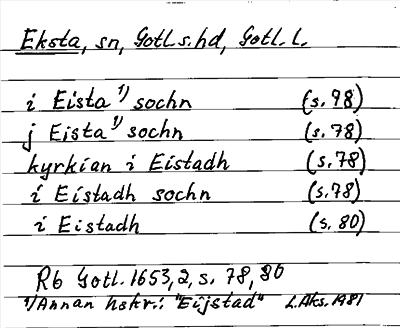 Eksta, sn, Gotl.s.hd, Gotl. l.
i Eista ¹⁾ sochn (s.98)
j Eista ¹⁾ sochn (s.78)
kyrkian i Eistadh (s.78)
i Eistadh sochn (s.78)
i Eistadh (s. 80)
Rb Gotl. 1653,2, s. 78, 80
¹⁾Annan hskr.: "Eijstad" L.Aks.1981